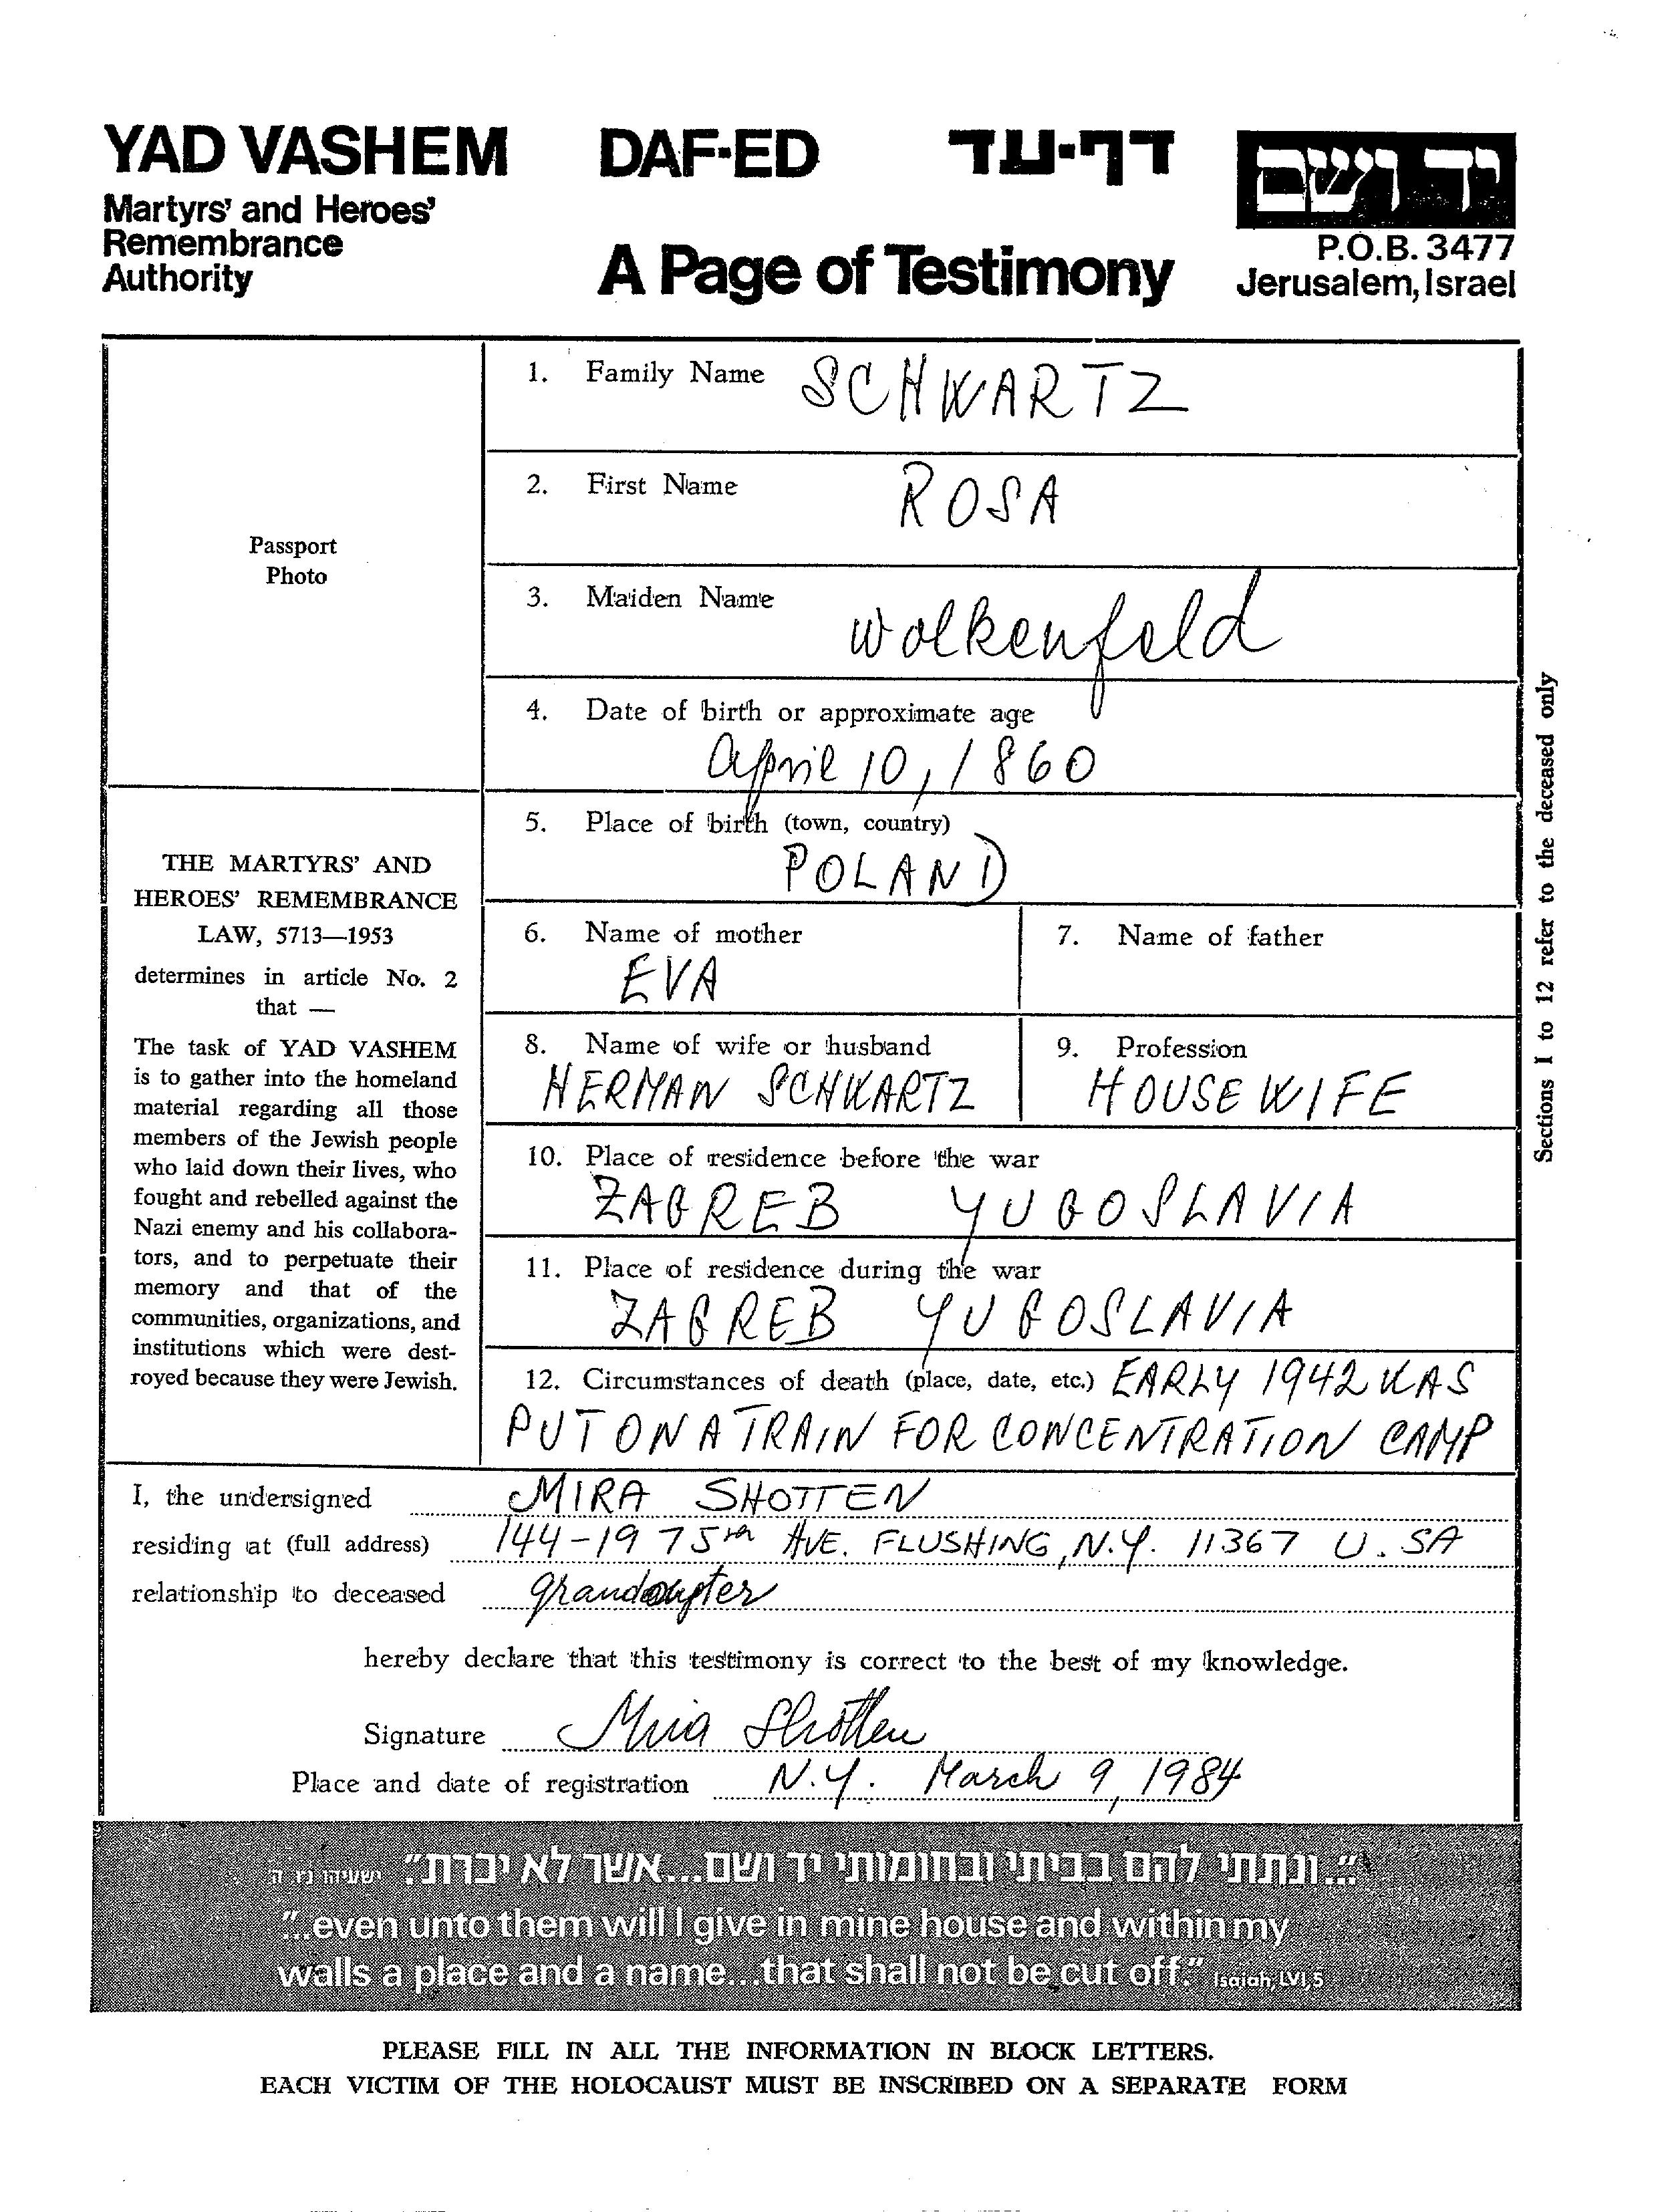 YAD VASHEM DAF-ED דף-עד יד ושם
Martyrs' and Heroes'
Remembrance
Authority
A Page of Testimony
P.O.B. 3477
Jerusalem, Israel
Passport
Photo
1. Family Name SCHWARTZ
2. First Name ROSA
3. Maiden Name Wolkenfeld
4. Date of birth or approximate age
April 10, 1860
5. Place of birth (town, country)
POLAND
6. Name of mother 7. Name of father
EVA
8. Name of wife or husband 9. Profession
HERMAN SCHWARTZ HOUSEWIFE
10. Place of residence before the war
ZAGREB YUGOSLAVIA
11. Place of residence during the war
ZAGREB YUGOSLAVIA
12. Circumstances of death (place, date, etc.) EARLY 1942 WAS
PUT ON A TRAIN FOR CONCENTRATION CAMP
Sections 1 to 12 refer to the deceased only
THE MARTYRS' AND
HEROES' REMEMBRANCE
LAW, 5713—1953
determines in article No. 2
that —
The task of YAD VASHEM
is to gather into the homeland
material regarding all those
members of the Jewish people
who laid down their lives, who
fought and rebelled against the
Nazi enemy and his collabora-
tors, and to perpetuate their
memory and that of the
communities, organizations, and
institutions which were dest-
royed because they were Jewish.
I, the undersigned MIRA SHOTTEN
residing at (full address) 144-19 75th AVE. FLUSHING, N.Y. 11367 U.SA
relationship to deceased grandaugter
hereby declare that this testimony is correct to the best of my knowledge.
Signature Mira Shotten
Place and date of registration N.Y. March 9, 1984
"...ונתתי להם בביתי ובחומותי יד ושם...אשר לא יכרת." ישעיהו נו ה
"...even unto them will I give in mine house and within my
walls a place and a name...that shall not be cut off." Isaiah, LVI, 5
PLEASE FILL IN ALL THE INFORMATION IN BLOCK LETTERS.
EACH VICTIM OF THE HOLOCAUST MUST BE INSCRIBED ON A SEPARATE FORM